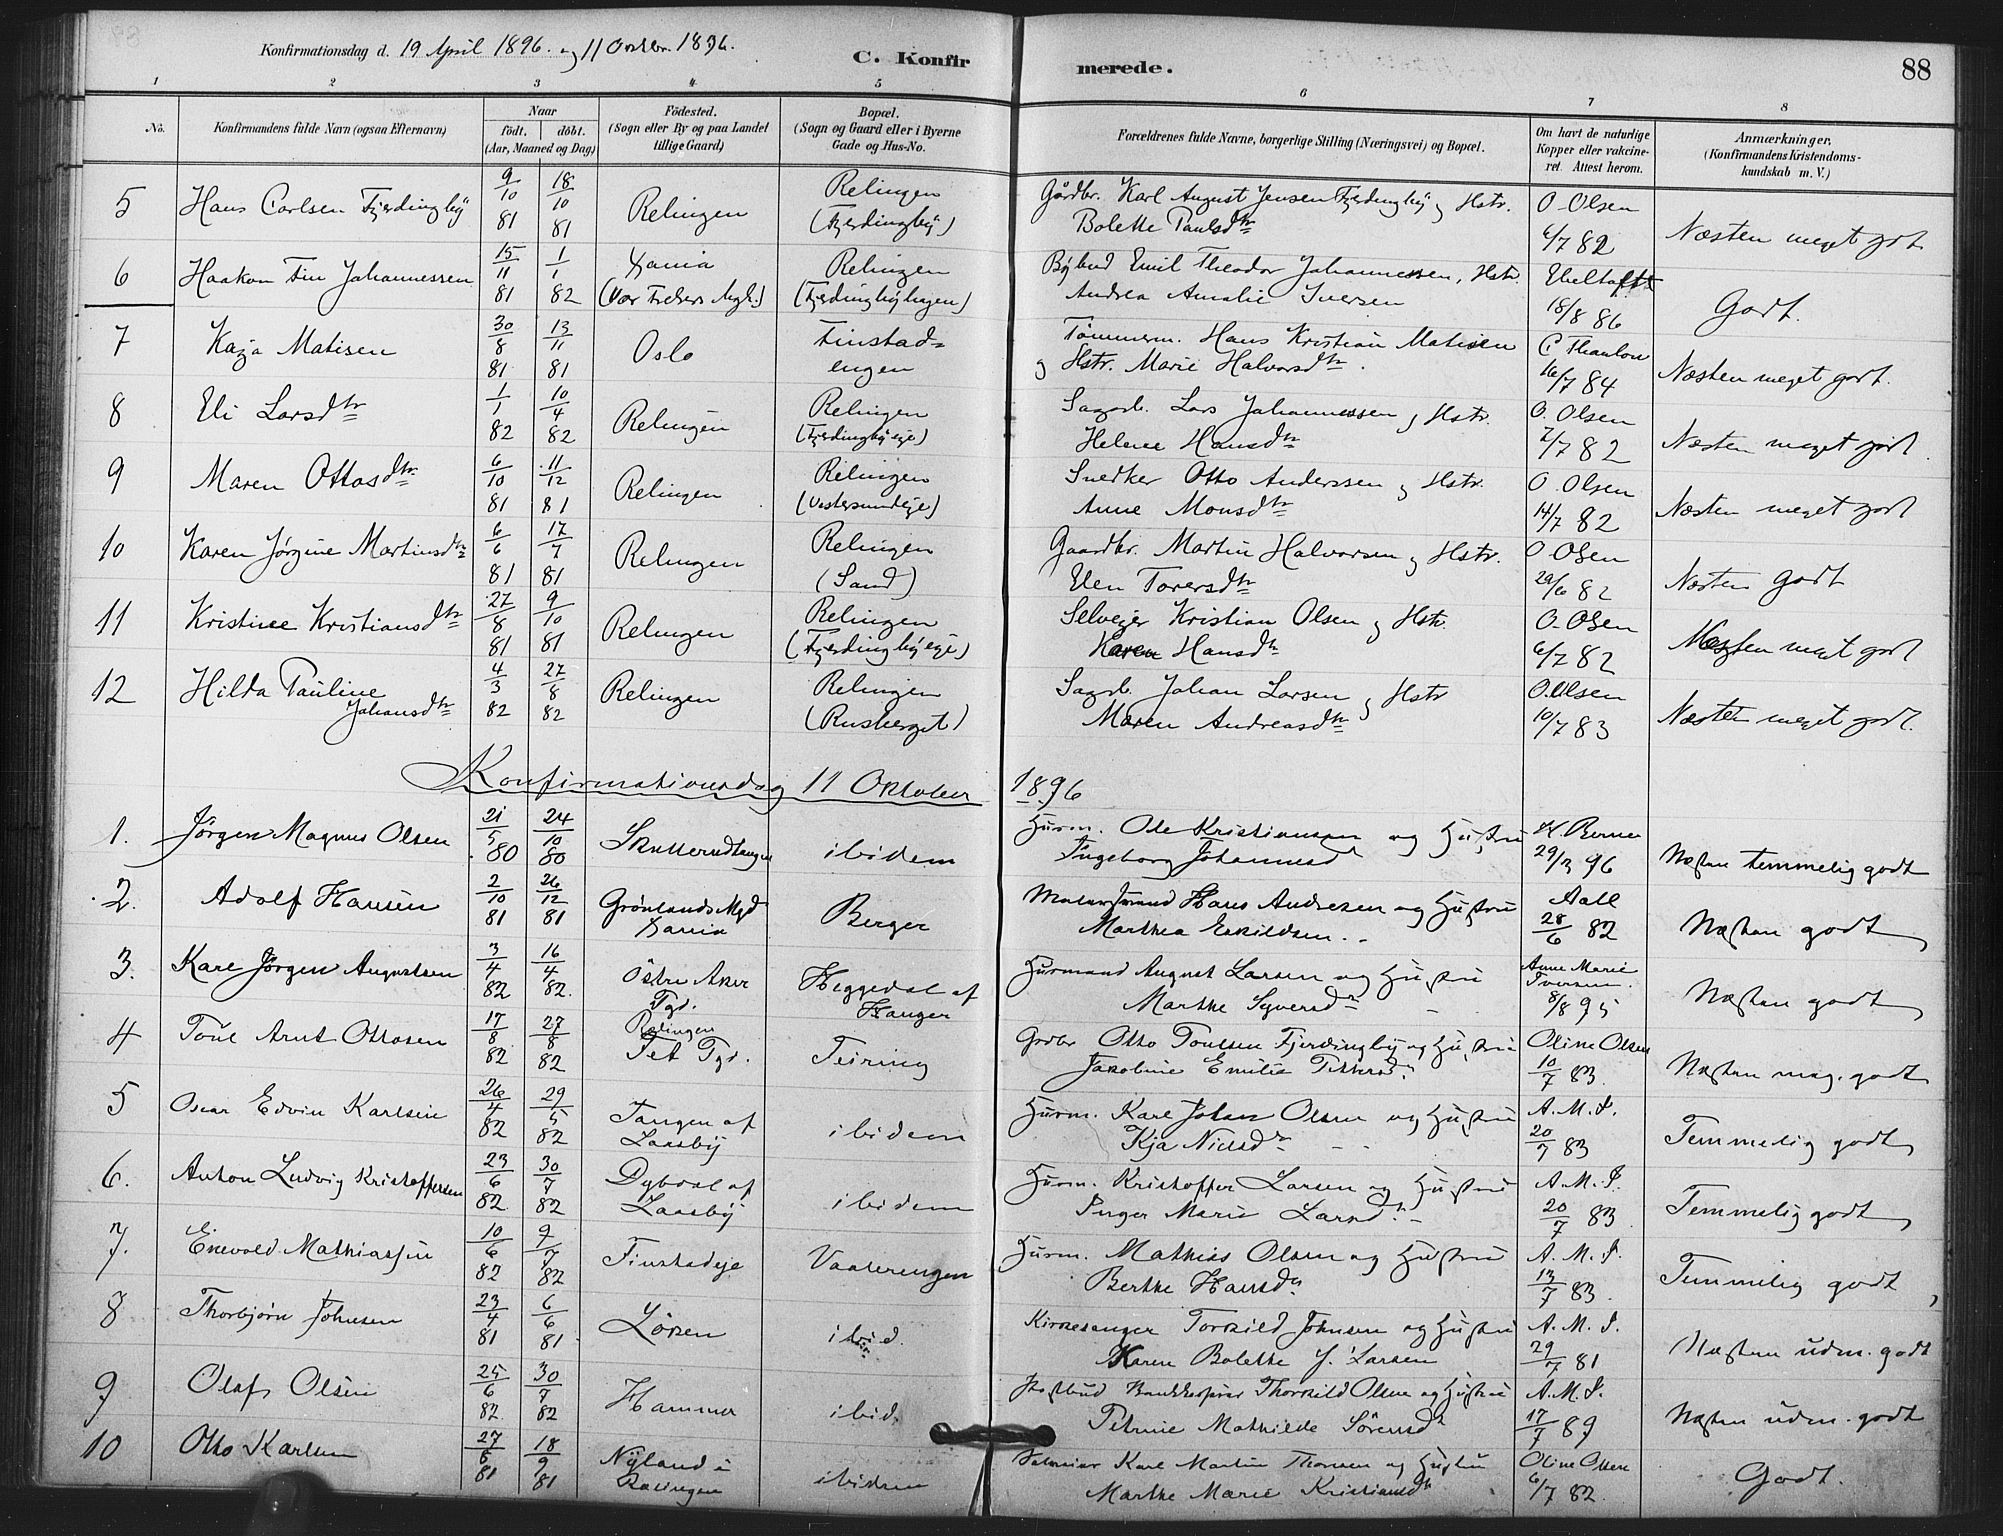 Konfirmationsdag d. 19 April 1896. og 11 Octbr. 1896.
C. Konfirmerede.
88
1 2 3 4 5 6 7 8
No.
Konfirmandens fulde Navn (ogsaa Efternavn)
Naar
födt. döbt.
(Aar, Maaned og Dag)
Födested.
(Sogn eller By og paa Landet
tillige Gaard)
Bopæl.
(Sogn og Gaard eller i Byerne
Gade og Hus-No.
Forældrenes fulde Navne, borgerlige Stilling (Næringsvei) og Bopæl.
Om havt de naturlige
Kopper eller vakcine-
ret. Attest herom.
Anmærkninger.
(Konfirmandens Kristendoms-
kundskab m. V.)
5 Hans Carlsen Fjerdingby 9/10 81 18/10 81 Relingen Relingen (Fjerdingby) Gårdbr. Karl August Jensen Fjerdingby og Hstr. Bolette Paulsdtr O. Olsen 6/7 82 Næsten meget godt
6 Haakon Fin Johannessen 15/11 81 1/1 82 Xania (Vor Frelsers Mgh.) Relingen (Fjerdingbyhagen) Bybud Emil Theodor Johannessen, Hstr. Andrea Amalie Iversen Ebeltoft 18/8 86 Godt.
7 Kaja Matisen 30/8 81 13/11 81 Oslo Finstad-engen Tømmerm. Hans Kristian Matisen og Hstr. Marie Halvorsdtr. C Thaulow 16/7 84 Næsten meget godt.
8 Eli Larsdtr 1/1 82 10/4 82 Relingen Relingen (Fjerdingby eje) Sagarb. Lars Johannessen og Hstr. Helene Hansdtr O. Olsen 7/7 82 Næsten meget godt
9 Maren Ottosdtr 6/10 81 11/12 81 Relingen Relingen (Vestersundeje) Snedker Otto Anderssen og Hstr. Anne Monsdtr O. Olsen 14/7 82 Næsten meget godt
10 Karen Jørgine Martinsdtr 6/6 81 17/7 81 Relingen Relingen (Sand) Gaardbr. Martin Halvorsen og Hstr. Elen Torersdtr O. Olsen 29/6 82 Næsten godt
11 Kristine Kristiansdtr 27/8 81 9/10 81 Relingen Relingen (Fjerdingby eje) Selvejer Kristian Olsen og Hstr. Karen Hansdtr O. Olsen 6/7 82 Næsten meget godt
12 Hilda Pauline Johansdtr 4/3 82 27/8 82 Relingen Relingen (Rusberget) Sagarb. Johan Larsen og Hstr Maren Andreasdtr O. Olsen 10/7 83 Næsten meget godt.
Konfirmationsdag 11 Oktober 1896
1. Jörgen Magnus Olsen 21/5 80 24/10 80 Skullerudtangen ibidem Husm. Ole Kristiansen og Hustru Ingeborg Johannesd 29/3 96 Næsten temmelig godt
2. Adolf Hansen 2/10 81 26/12 81 Grönlands Mgd Xania Berger Hans Andresen og Hustru Marthea Eskildsen. Aall 28/6 82 Næsten godt
3. Karl Jörgen Augustsen 3/4 82 16/4 82. Östre Aker Pgd. Heggedal af Hanger Husmand August Larsen og Hustru Marthe Syversdr Anne Marie Iversen. 8/8 95 Næsten godt
4 Poul Arnt Ottosen 17/8 82 27/8 82 Relingen Fet Pgd. Teiring Grdbr Otto Poulsen Fjerdingby og Hustru Jakobine Emilie Pettersdr. Oline Olsen 10/7 83. Næsten meg. godt
5 Oscar Edvin Karlsen 26/4 82 29/5 82 Tangen af Laasby ibidem Husm. Karl Johan Olsen og Hustru Kja Nielsdr A. M. I. 20/7 83 Temmelig godt
6. Anton Ludvig Kristoffersen 23/6 82 30/7 82 Dybdal af Laasby ibidem Husm. Kristoffer Larsen og Hustru Inger Marie Larsd. A. M. I. 20/7 83. Temmelig godt
7. Enevold Mathiassen 10/6 82 9/7 82 Finstadeje Vaalerengen Husm. Mathias Olsen og Hustru Berthe Hansdr. A. M. I. 13/7 83. Temmelig godt
8 Thorbjörn Johnsen 23/4 81 6/6 81 Lören ibid. Kirkesanger Torkild Johnsen og Hustru Karen Bolette J. Larsen A. M. I. 29/7 81 Næsten udm. godt
9 Olaf Olsen 25/6 82. 30/7 82 Hammer ibid. Thorkild Olsen og Hustru Petrine Mathilde Sörensdr A. M. I. 17/7 89 Næsten udm. godt
10 Otto Karlsen 27/8 81 18/9 81 Nyland i Rælingen ibidem Karl Martin Thorsen og Hustru Marthe Marie Kristiansdr Oline Olsen 6/7 82. Godt.